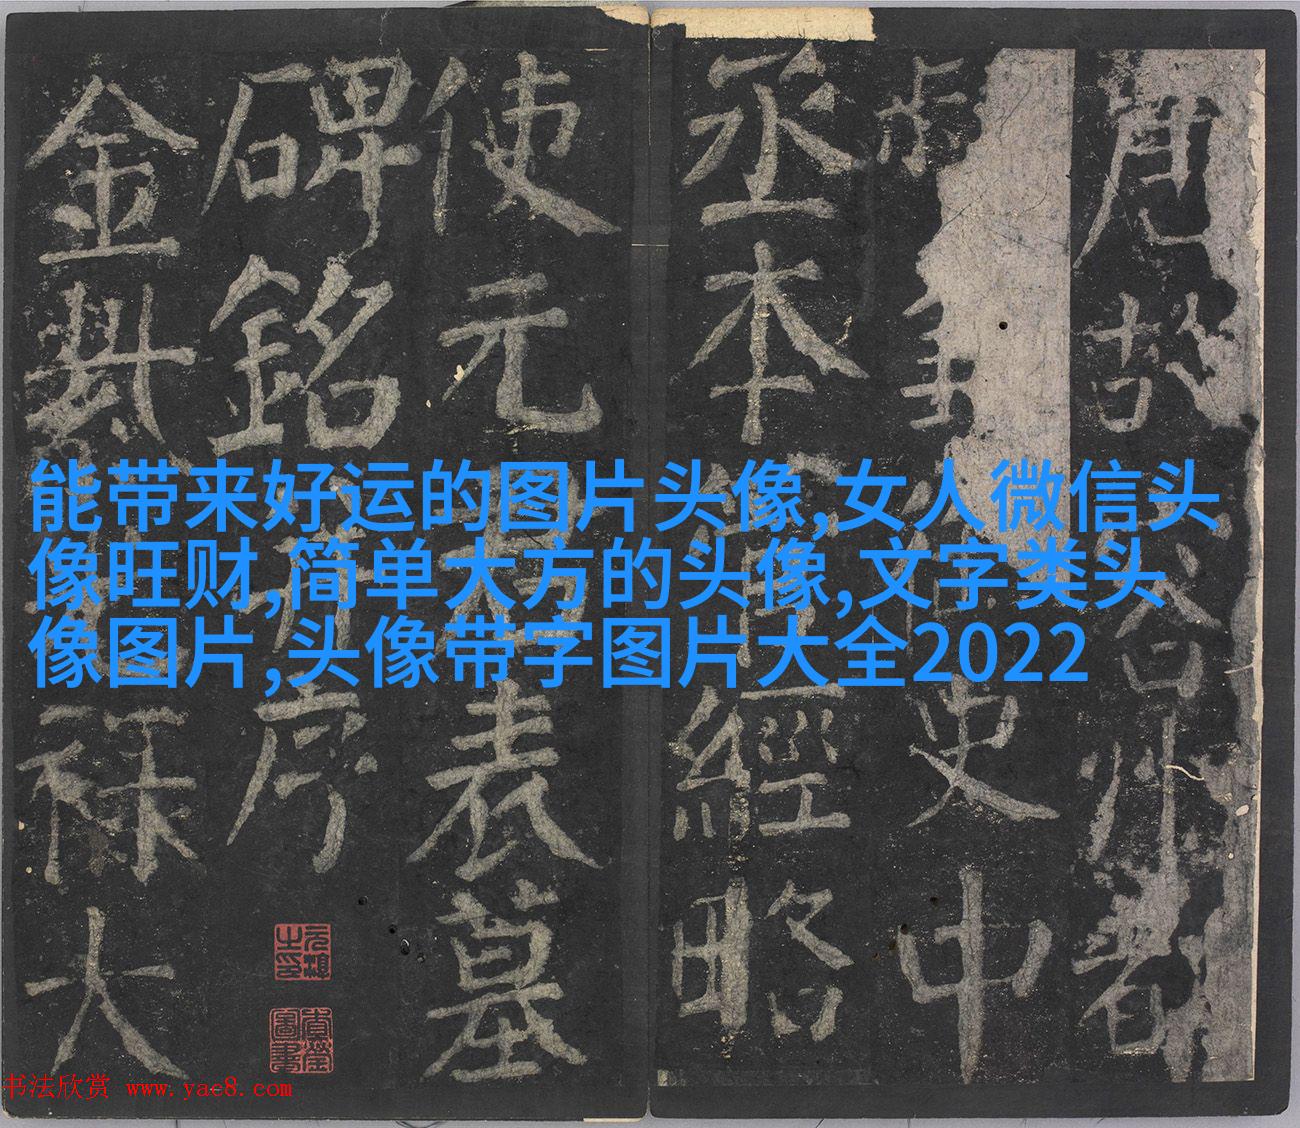 唐故容州都
史中
丞本經略
使元表墓
碑銘序
金紫祿大
能带来好运的图片头像,女人微信头
像旺财,简单大方的头像,文字类头
像图片,头像带字图片大全2022
书法欣赏 www.yac8.com